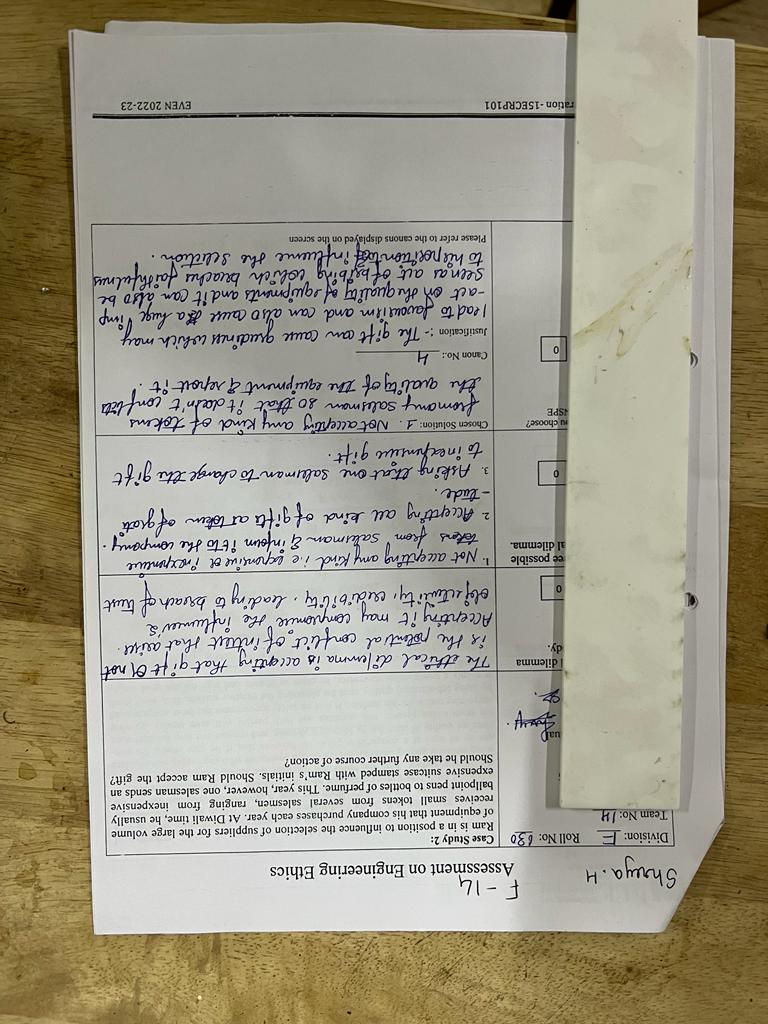 Shreya.H
F-14
Assessment on Engineering Ethics
Division: F Roll No: 630
Team No: 14
Case Study 2:
Ram is in a position to influence the selection of suppliers for the large volume
of equipment that his company purchases each year. At Diwali time, he usually
receives small tokens from several salesmen, ranging from inexpensive
ballpoint pens to bottles of perfume. This year, however, one salesman sends an
expensive suitcase stamped with Ram's initials. Should Ram accept the gift?
Should he take any further course of action?
ual
l dilemma
dy.
0
The ethical dilemma is accepting that gift or not
is the potential conflict of interest that arise.
Accepting it may compromise the influencer's
objectivity, credibility, leading to breach of trust
ee possible
al dilemma.
0
1. Not accepting any kind i.e expensive or inexpensive
tokens from salesman & inform it to the company.
2. Accepting all kind of gifts as token of grati
-tude.
3. Asking that one salesman to change the gift
to inexpensive gift.
ou choose?
NSPE
0
Chosen Solution: 1. Not accepting any kind of tokens
from any salesman so that it doesn't conflicts
the quality of the equipment & report it.
Canon No.: 4
Justification :- The gift can cause greediness which may
lead to favouritism and can also cause a huge imp
-act on the quality of equipments and it can also be
seen as an act of bribing which breaches faithfulness
to his position of influence the selection.
Please refer to the canons displayed on the screen
ration -15ECRP101
EVEN 2022-23